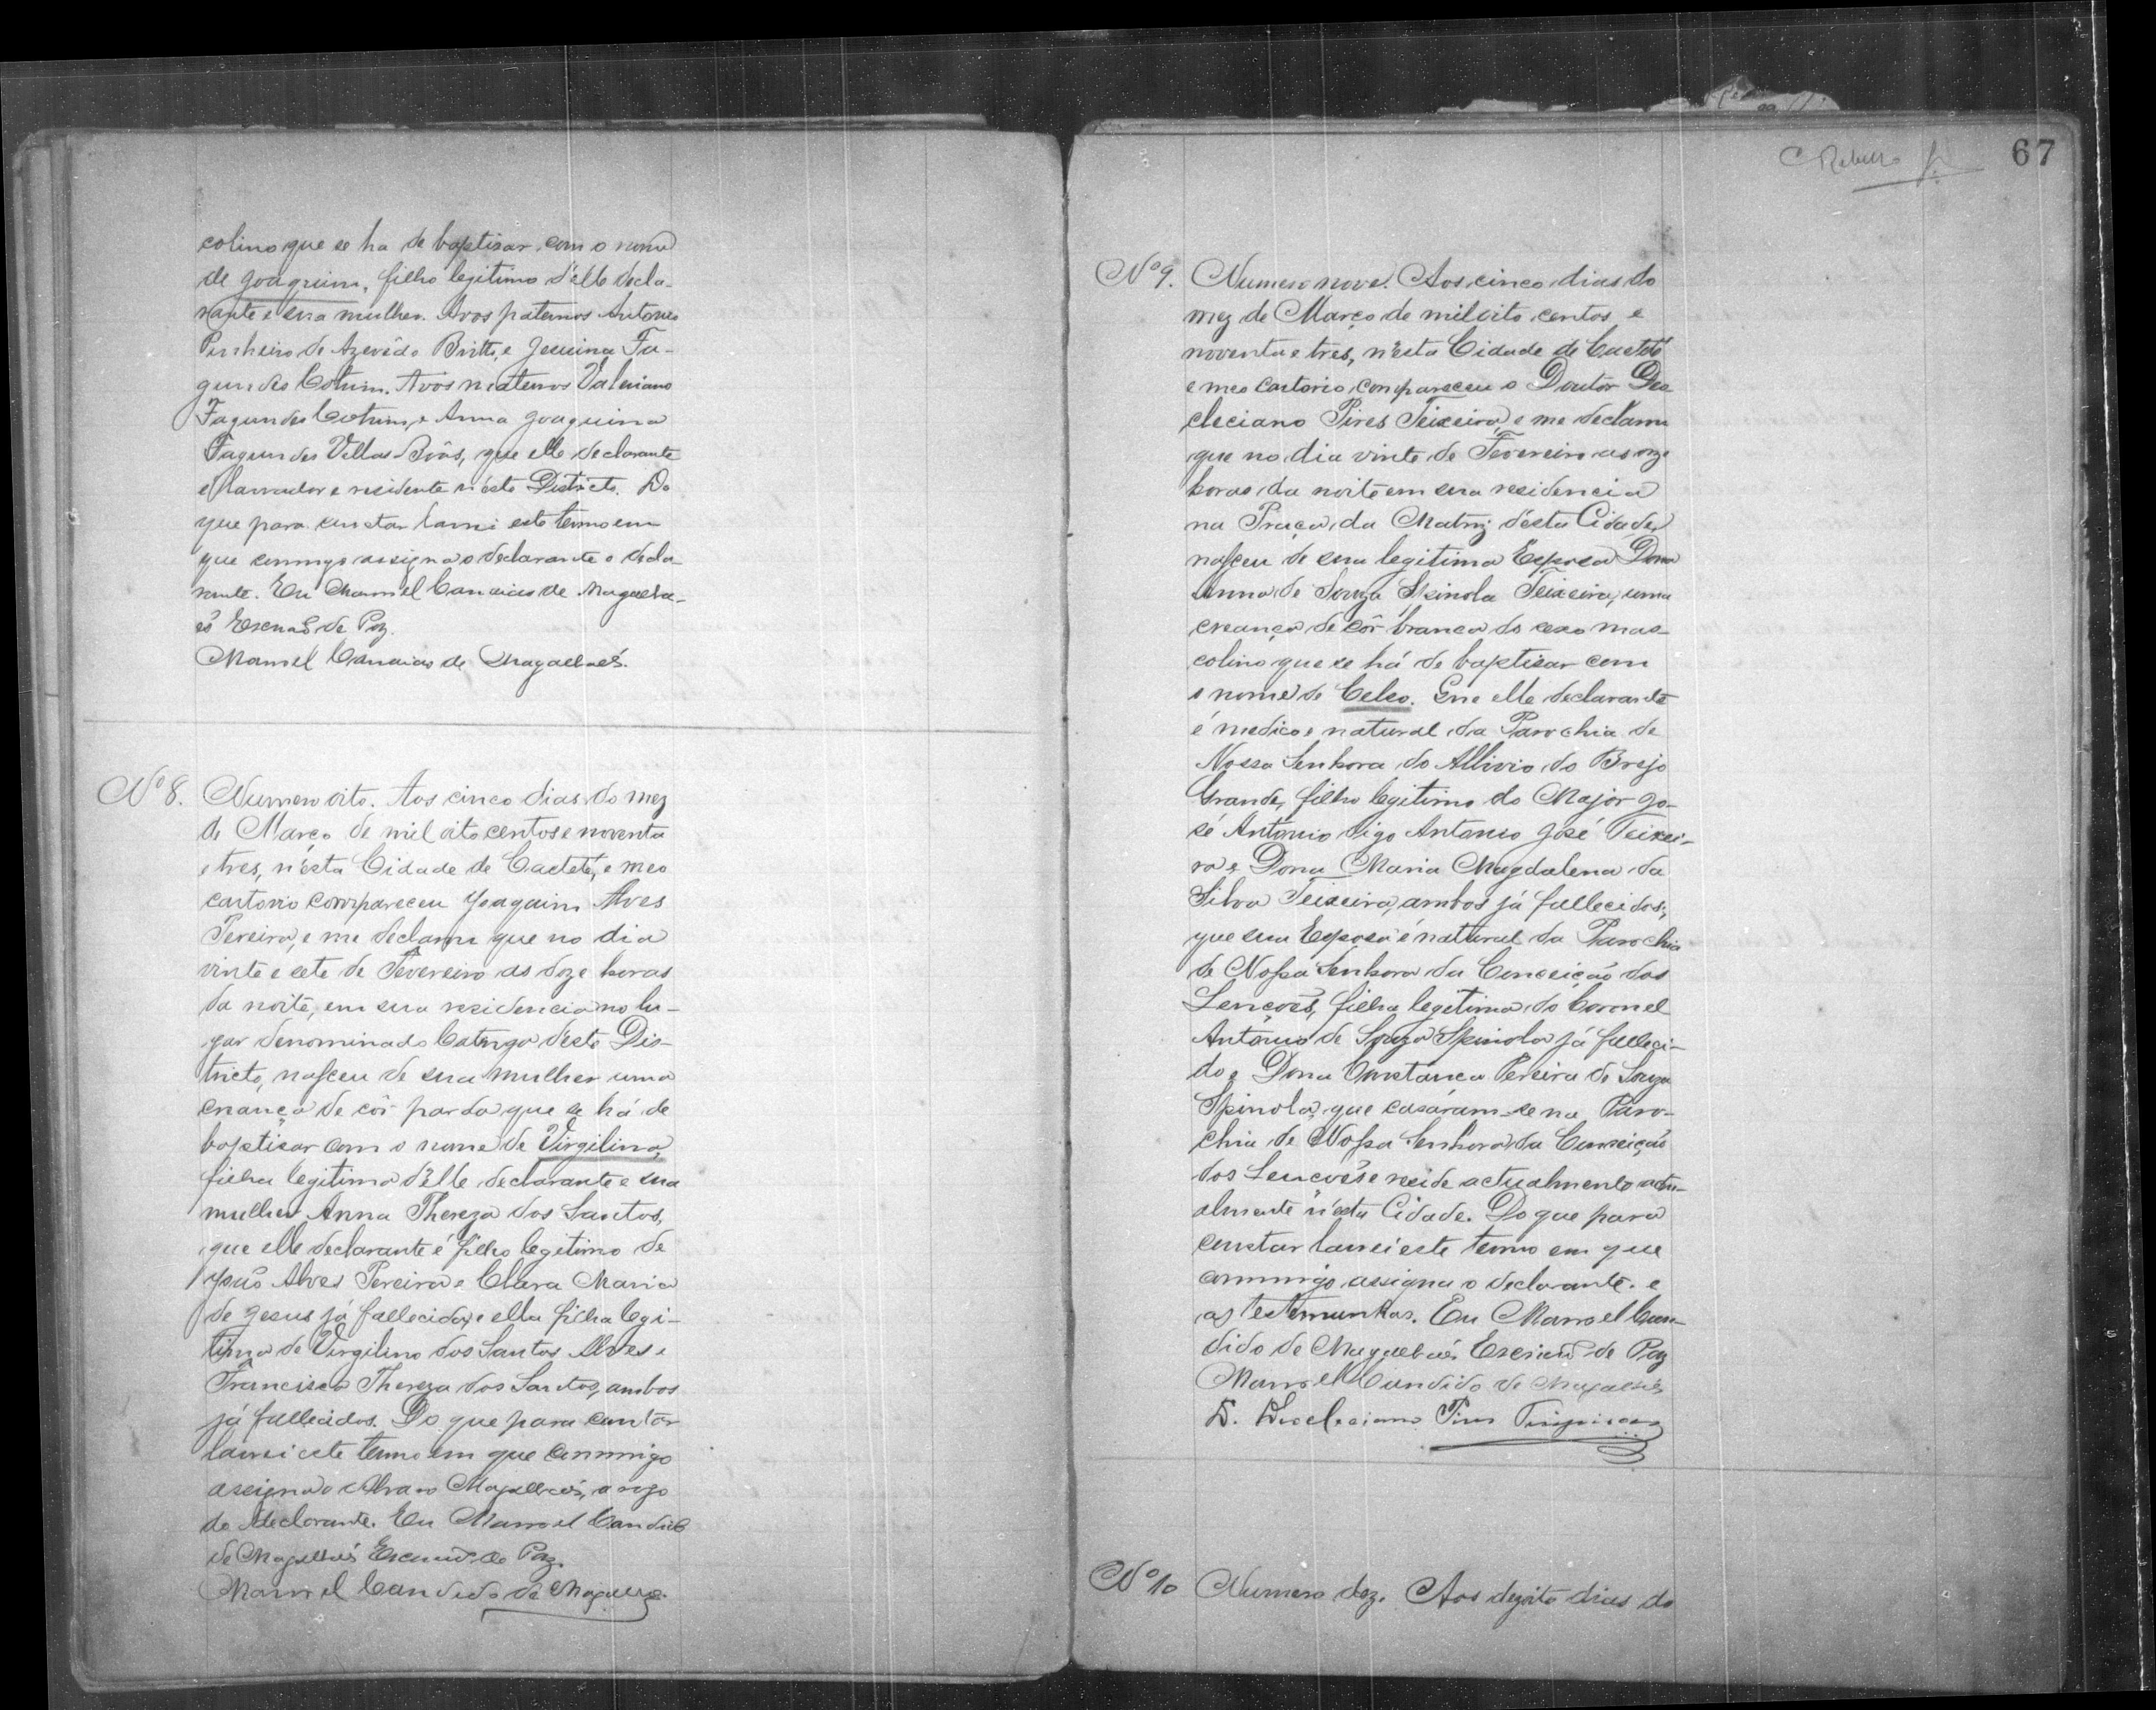 colino que se ha de baptisar com o nome
de Joaquim, filho legitimo d'elle decla-
rante e sua mulher. Avos paternos Antonio
Pinheiro de Azevêdo Britto, e Jesuina Fa-
gundes Cotrim. Avós maternos Valeriano
Fagundes Cotrim, e Anna Joaquina
Fagundes Villas-Bôas, que elle declarante
é lavrador e residente n'este Districto. Do
que para constar lavrei este termo em
que commigo assigna o declarante o decla-
rante. Eu Manoel Candido de Magalha-
es Escrivão de Paz.
Manoel Candido de Magalhaes.
Nº 8. Numero oito. Aos cinco dias do mez
de Março de mil oito centos e noventa
e tres, n'ésta Cidade de Caeteté, e meo
cartorio compareceu Joaquim Alves
Pereira, e me declarou que no dia
vinte e sete de Fevereiro as doze horas
da noite, em sua residencia no lu-
gar denominado Catinga d'este Dis-
tricto, nasceu de sua mulher uma
criança de côr parda que se há de
baptisar com o nome de Virgilina,
filha legitima d'elle declarante e sua
mulher Anna Thereza dos Santos,
que elle declarante é filho legitimo de
João Alves Pereira e Clara Maria
de Jesus já fallecida, e ella filha legi-
tima de Virgilino dos Santos Alves e
Francisca Thereza dos Santos, ambos
já fallecidos. Do que para constar
lavrei este termo em que commigo
assigna o Alvaro Magalhães, a rogo
do declarante. Eu Manoel Candido
de Magalhães Escrivão de Paz.
Manoel Candido de Magalhães.
67
Nº 9. Numero nove. Aos cinco dias do
mez de Março de mil oito centos e
noventa e tres, n'ésta Cidade de Caeteté
e meo cartorio compareceu o Doutor Deo
cleciano Pires Teixeira, e me declarou
que no dia vinte de Fevereiro as onze
horas da noite em sua residencia
na Praça da Matriz d'ésta Cidade,
nasceu de sua legitima Esposa Dona
Anna de Souza Spinola Teixeira, uma
creança de côr branca do sexo mas-
colino que se há de baptisar com
o nome de Celso. Que elle declarante
é medico e natural da Parochia de
Nossa Senhora do Allivio do Brejo
Grande, filho legitimo do Major Jo-
sé Antonio digo Antonio José Teixei-
ra e Dona Maria Magdalena da
Silva Teixeira, ambos já fallecidos;
que sua Esposa é natural da Parochia
de Nossa Senhora da Conceição dos
Lençoes, filha legitima do Coronel
Antonio de Souza Spinola já falleci-
do e Dona Constança Pereira de Souza
Spinola, que casáram-se na Paro-
chia de Nossa Senhora da Conceição
dos Lençoes e reside actualmente actu-
almente n'ésta Cidade. Do que para
constar lavrei este termo em que
commigo assigna o declarante e
as testemunhas. Eu Manoel Can-
dido de Magalhães Escrivão de Paz
Manoel Candido de Magalhães
D. Deocleciano Pires Teixeira
Nº 10 Numero dez. Aos dezoito dias do